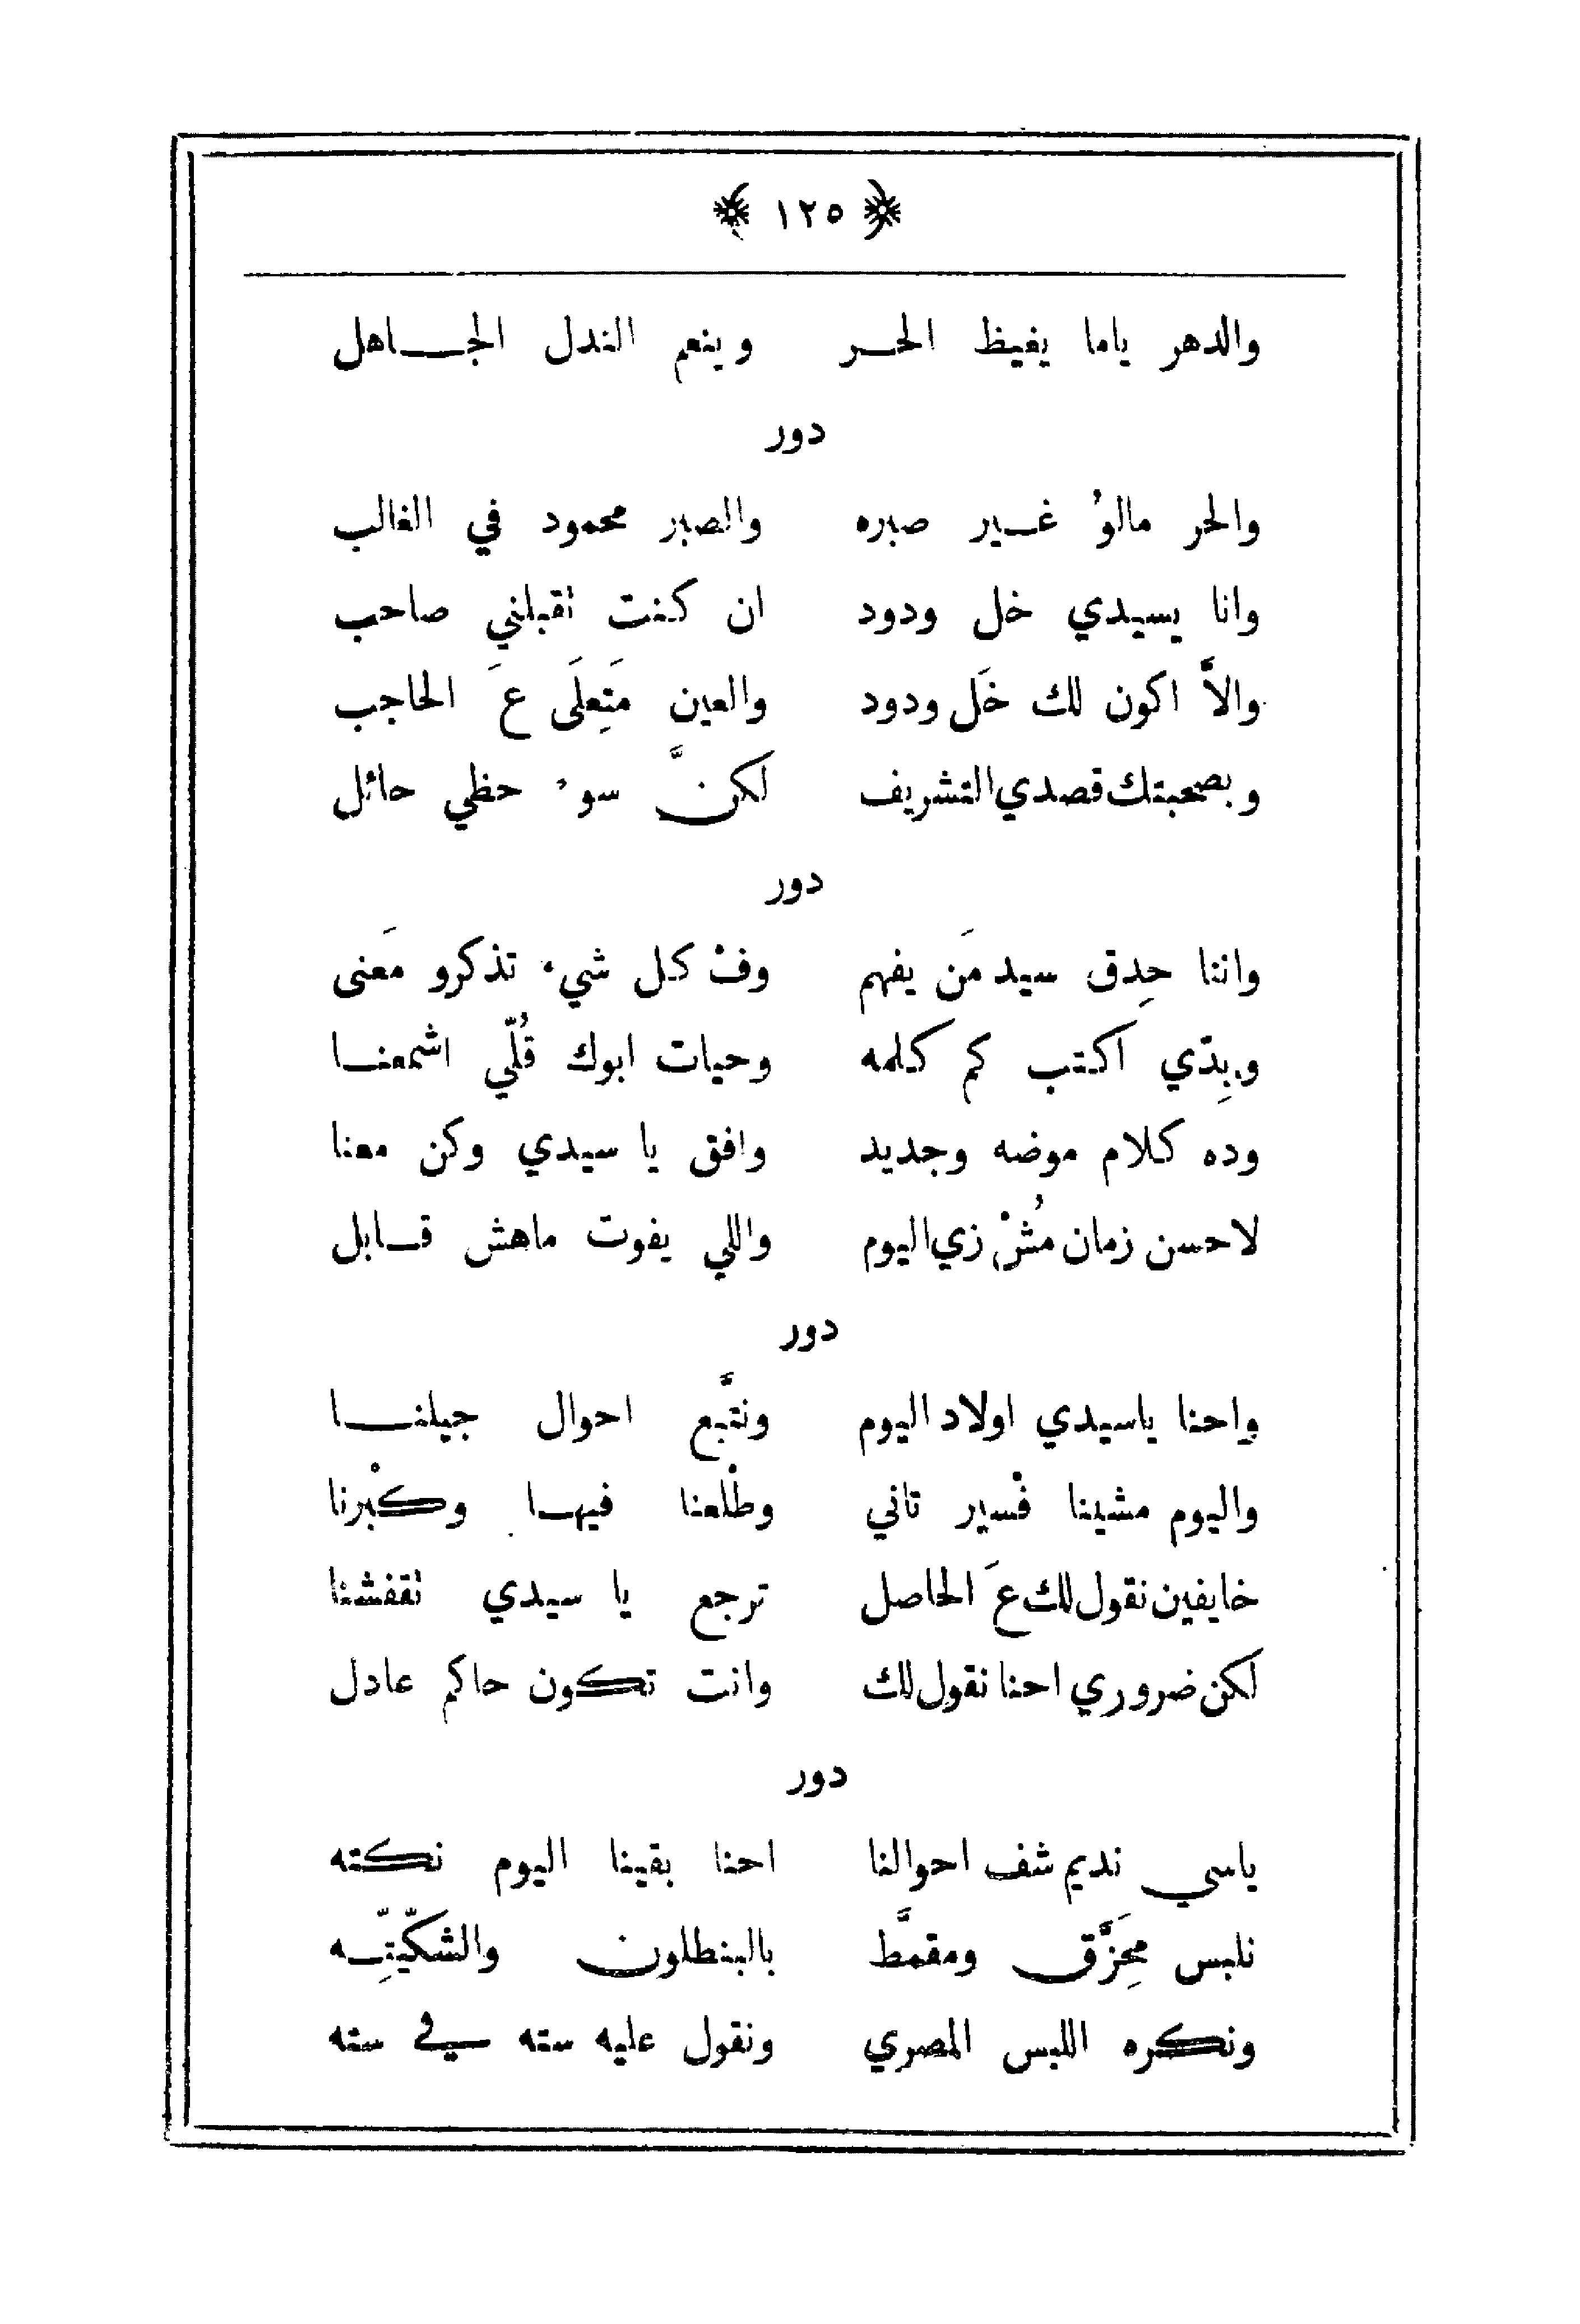 ﴿ ١٢٥ ﴾
والدهر ياما يغيظ الحر وينعم الندل الجاهل
دور
والحر مالوُ غير صبره والصبر محمود في الغالب
وانا يسيدي خل ودود ان كنت تقبلني صاحب
والاَّ اكون لك خَل ودود والعين مَتِعلَى عَ الحاجب
وبصحبتك قصدي التشريف لكنَّ سوء حظي حائل
دور
واننا حِدق سيد مَن يفهم وفْ كل شيء تذكرو مَعنى
وبِدّي اكتب كم كلمه وحيات ابوك قُلّي اشمعنا
وده كلام موضه وجديد وافق يا سيدي وكن معنا
لاحسن زمان مُشْ زي اليوم واللي يفوت ماهش قابل
دور
واحنا ياسيدي اولاد اليوم ونتَّبع احوال جيلنا
واليوم مشينا فْسير تاني وطْلعنا فيها وكْبرنا
خايفين نقول لك عَ الحاصل ترجع يا سيدي تقفشنا
لكن ضروري احنا نقول لك وانت تكون حاكم عادل
دور
ياسي نديم شف احوالنا احنا بقينا اليوم نكته
نلبس مِحَزَّق ومقمَّط بالبنطلون والشكّيتِّه
ونكره اللبس المصري ونقول عليه سته في سته